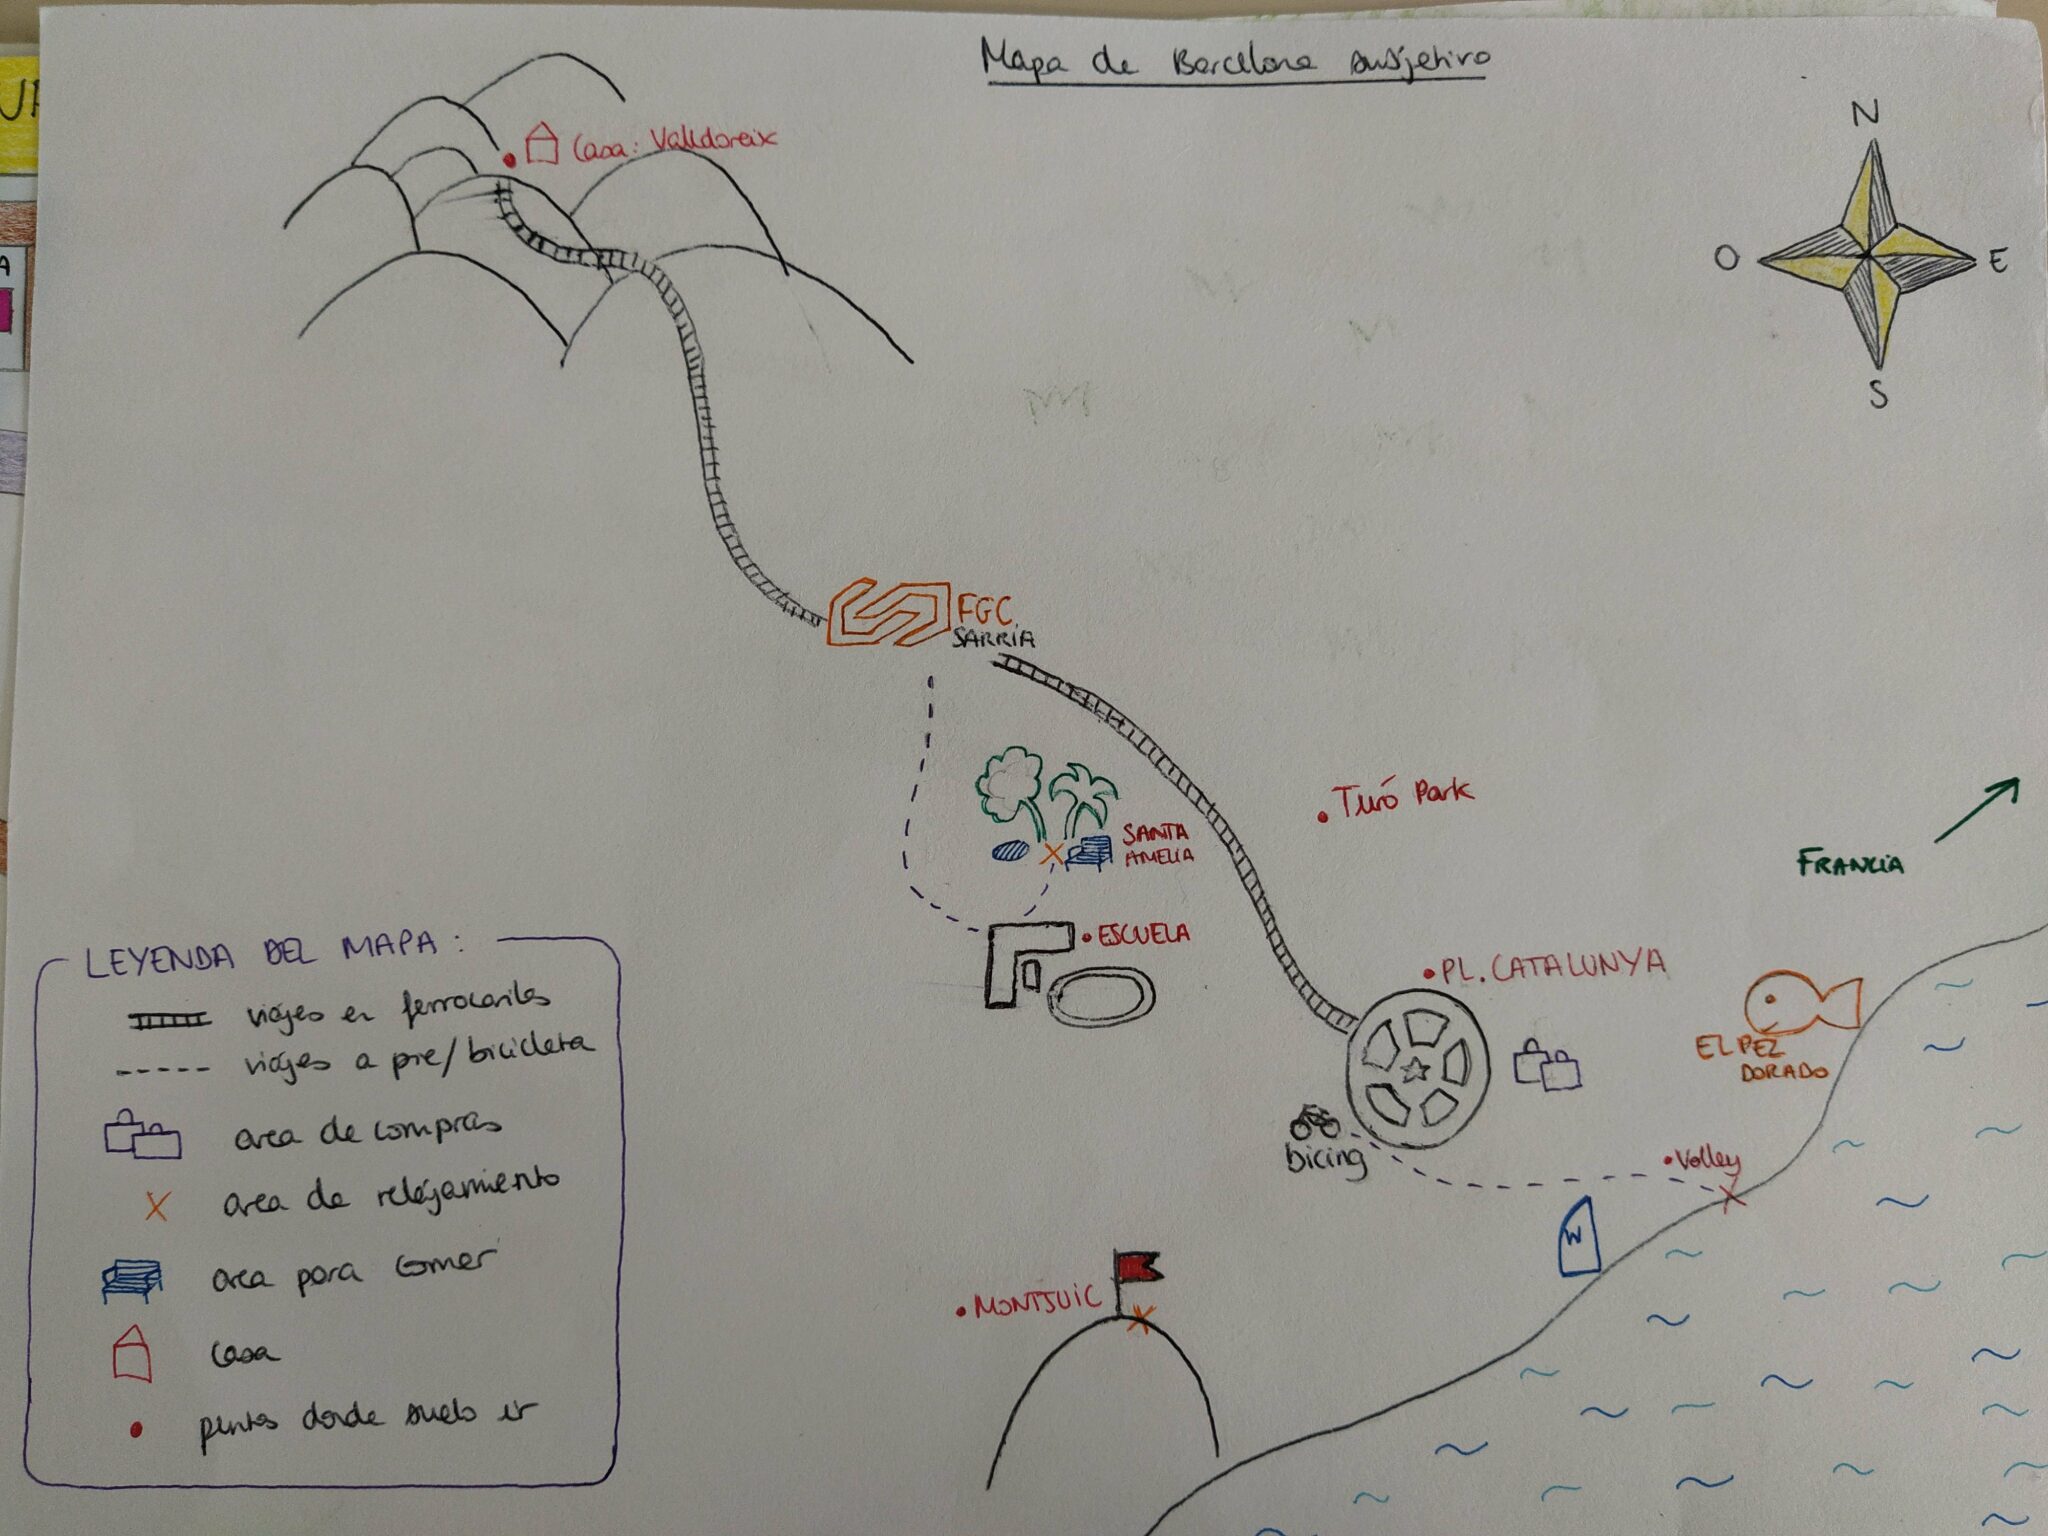 Mapa de Barcelona subjetivo
N
O
E
S
Casa: Valldoreix
FGC
SARRIÀ
SANTA
AMELIA
Turó Park
FRANCIA
ESCUELA
PL. CATALUNYA
EL PEZ
DORADO
bicing
Volley
W
MONTJUIC
LEYENDA DEL MAPA:
viajes en ferrocariles
viajes a pie/bicicleta
area de compras
area de relajamiento
area para comer
casa
puntos donde suelo ir